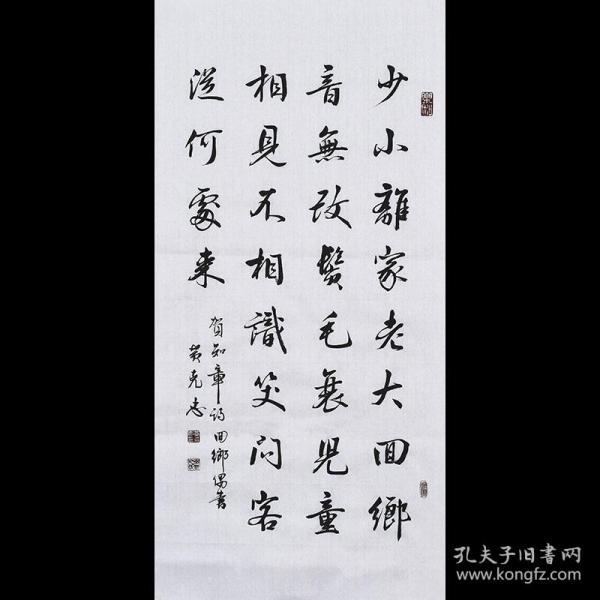 少小離家老大回鄉
音無改鬢毛衰兒童
相見不相識笑问客
從何處来
賀知章詩回鄉偶書
黄克忠
孔夫子旧書网
www.kongfz.com